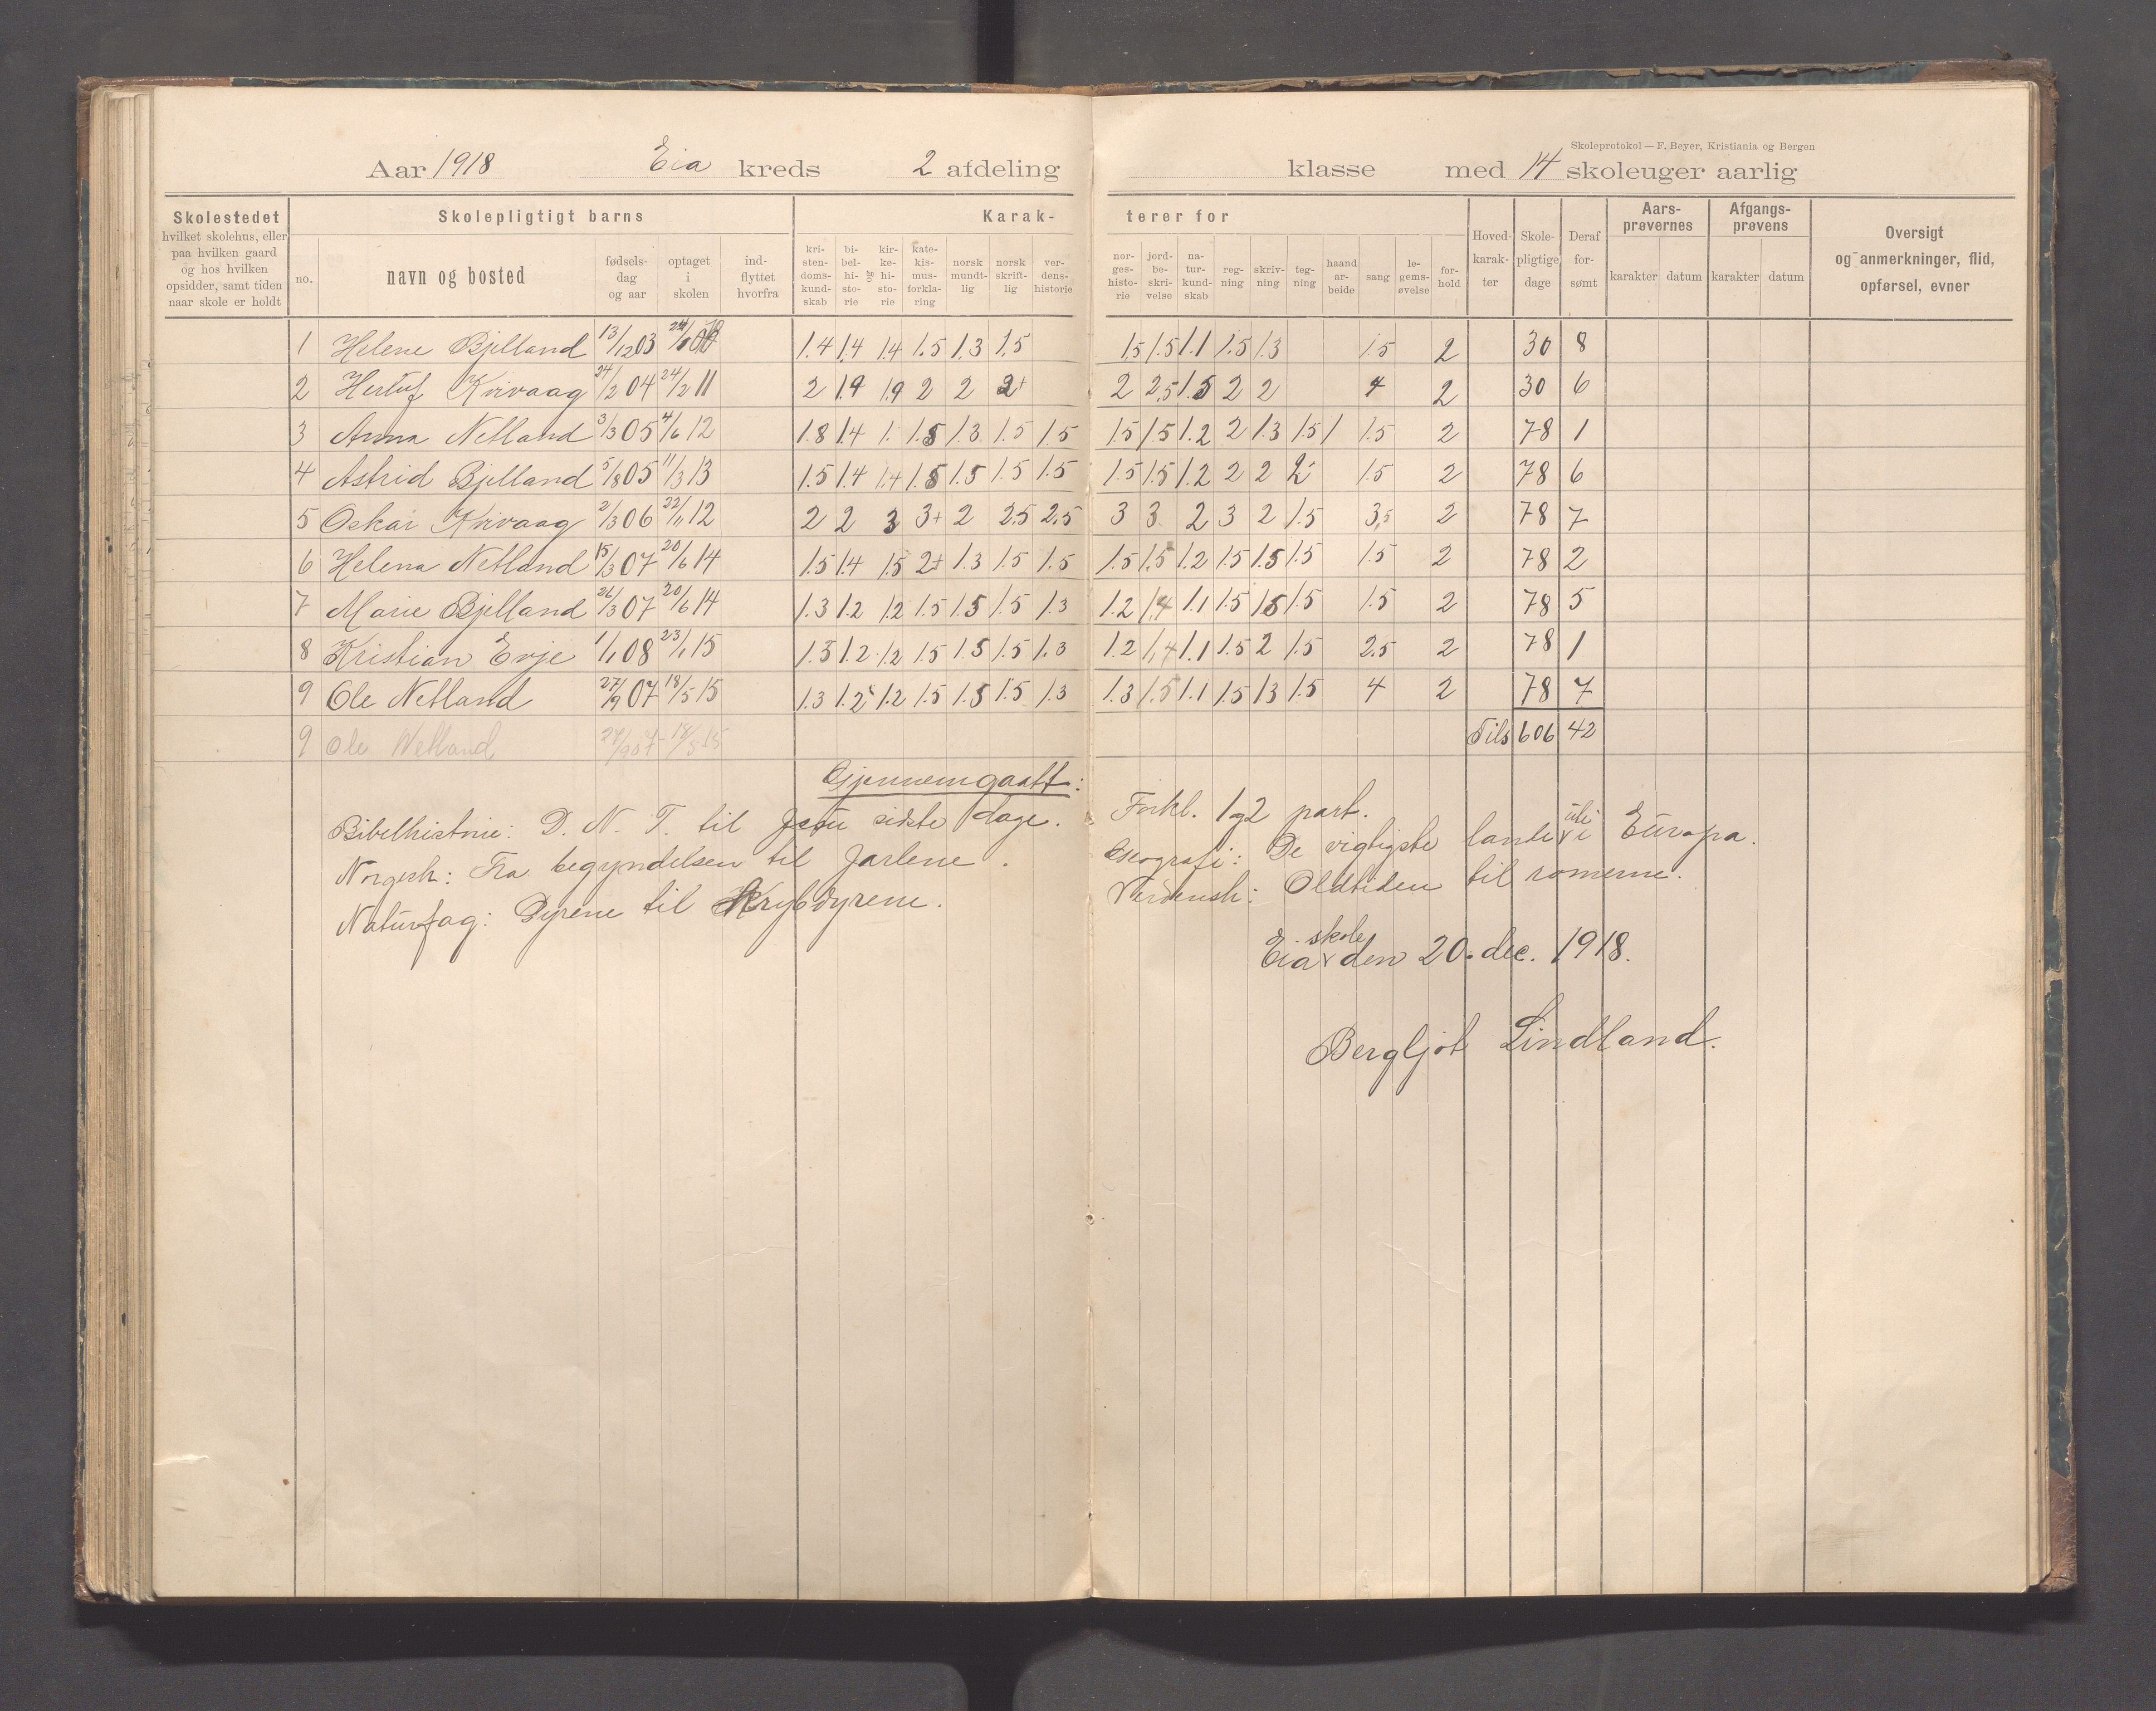 Skoleprotokol — F. Beyer, Kristiania og Bergen
Aar 1918 Eia kreds 2 afdeling klasse med 14 skoleuger aarlig
Skolestedet hvilket skolehus, eller paa hvilken gaard og hos hvilken opsidder, samt tiden naar skole er holdt
Skolepligtigt barns
no. navn og bosted fødsels-dag og aar optaget i skolen ind-flyttet hvorfra
Karak-terer for
kri-sten-doms-kund-skab bi-bel-hi-sto-rie kir-ke-hi-sto-rie kate-kis-mus- og forkla-ring norsk mundt-lig norsk skrift-lig ver-dens-historie nor-ges-histo-rie jord-be-skri-velse na-tur-kund-skab reg-ning skriv-ning teg-ning haand ar-beide sang le-gems-øvelse for-hold
Hoved-karak-ter Skole-pligtige dage Deraf for-sømt
Aars-prøvernes karakter datum Afgangs-prøvens karakter datum
Oversigt og anmerkninger, flid, opførsel, evner
1 Helene Bjelland 13/12 03 1.4 1.4 1.4 1.5 1.3 1.5 1.5 1.5 1.1 1.5 1.3 1.5 2 30 8
2 Kvivaag 24/2 04 24/2 11 2 1.9 1.9 2 2 2+ 2 2.5 1.5 2 2 4 2 30 6
3 Anna Netland 3/3 05 4/6 12 1.8 1.4 1. 1.5 1.3 1.5 1.5 1.5 1.5 1.2 2 1.3 1.5 1 1.5 2 78 1
4 Astrid Bjelland 5/8 05 11/3 13 1.5 1.4 1.4 1.5 1.5 1.5 1.5 1.5 1.5 1.2 2 2 2- 1.5 2 78 6
5 Oskar Kvivaag 2/3 06 22/11 12 2 2 3 3+ 2 2.5 2.5 3 3 2 3 2 1.5 3.5 2 78 7
6 Helena Netland 15/3 07 20/6 14 1.5 1.4 1.5 2+ 1.3 1.5 1.5 1.5 1.5 1.2 1.5 1.5 1.5 1.5 2 78 2
7 Marie Bjelland 26/3 07 20/6 14 1.3 1.2 1.2 1.5 1.5 1.5 1.3 1.2 1.4 1.1 1.5 1.5 1.5 1.5 2 78 5
8 Kristian Evje 1/1 08 23/1 15 1.3 1.2 1.2 1.5 1.5 1.5 1.3 1.2 1.4 1.1 1.5 2 1.5 2.5 2 78 1
9 Ole Netland 27/9 07 18/5 15 1.3 1.2 1.2 1.5 1.5 1.5 1.3 1.3 1.5 1.1 1.5 1.3 1.5 4 2 78 7
9 Ole Netland 27/9 07 18/5 15 Tils 606 42
Gjennemgaatt:
Bibelhistorie: D. N. T. til Jesu sidste dage. Forkl. 1 g 2 part.
Norgesh: Fra begyndelsen til Jarlene. Geografi: De vigtigste lande uti Europa.
Naturfag: Dyrene til Krybdyrene. Verdensh: Oldtiden til romerne.
Eia skole den 20. dec. 1918.
Bergljot Lindland.